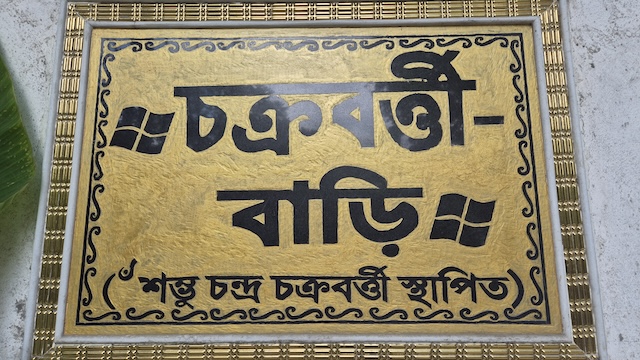 চক্রবর্ত্তী-
বাড়ি
(ঁ শম্ভু চন্দ্র চক্রবর্ত্তী স্থাপিত)